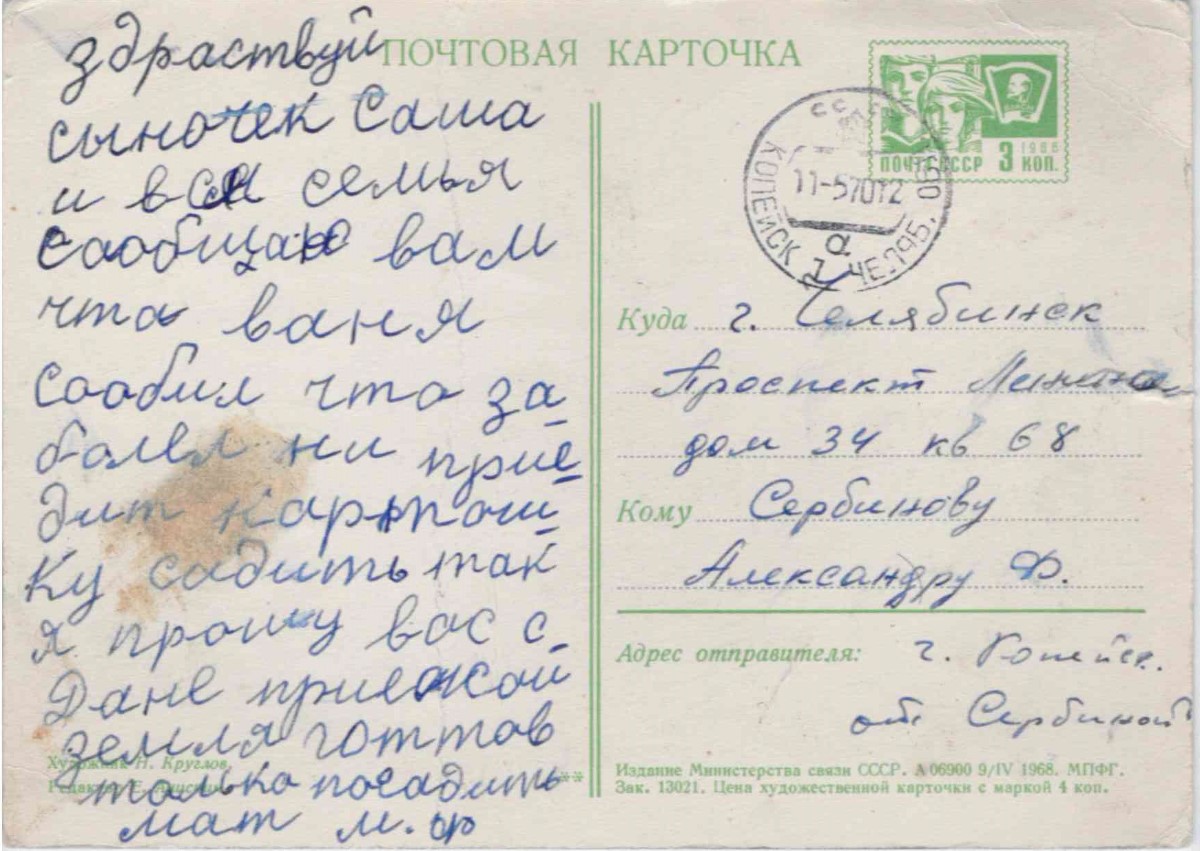 здраствуй
сыночек Саша
и вся семья
сообщаю вам
что ваня
сообил что за-
болел ни прие-
дит картош-
ку садить так
я прошу вас с.
Дане приежой
земля готтов
только посадить
мат м. ф
ПОЧТОВАЯ КАРТОЧКА
ПОЧТА СССР 3 КОП.
1966
КОПЕЙСК 1 ЧЕЛЯБ. ОБ
11-57012
а
Куда г. Челябинск
Проспект Ленина
дом 34 кв 68
Кому Сербинову
Александру Ф.
Адрес отправителя: г. Копейск.
от Сербиной
Художник Н. Круглов
Издание Министерства связи СССР. А 06900 9/IV 1968. МПФГ.
Зак. 13021. Цена художественной карточки с маркой 4 коп.